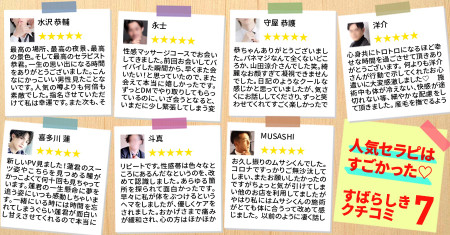 水沢 恭輔
★★★★★
最高の場所、最高の夜景、最高
の景色。そして最高のセラピスト
恭君。一生の思い出になる時間
をありがとうございました。こん
なにかっこいい男性見たことな
いです。人気の噂よりも何倍も
素敵でした。指名させていただ
けて私は幸運です。また次も、そ
永士
★★★★★
性感マッサージコースでお会い
してきました。前回お会いしてバ
イバイした瞬間から、早くまた会
いたいと思っていたので、また
会えて本当に嬉しかったです。
ずっとDMでやり取りしてもらっ
ているのに、いざ会うとなると、
いまだに少し緊張してしまう変
守屋 恭護
★★★★★
恭ちゃんありがとうございまし
た。パネマジなんて全くないどこ
ろか、山田涼介さんでした笑。綺
麗なお顔すぎて凝視できません
でした。日記のようなクールな
感じかと思っていましたが、気さ
くにお話ししてくださり、ずっと笑
わせてくれてすごく楽しかったで
洋介
★★★★★
心身共にトロトロになるほど幸
せな時間を過ごさせて頂きあり
がとうございます。何よりも洋介
さんが行動で示してくれたお心
遣いに大変感激しました♡ 施
術中も体が冷えない、快感が途
切れない等、細やかな配慮をし
て頂きました。座毛を撫でるよう
喜多川 蓮
★★★★★
新しいPV見ました！蓮君のスー
ツ姿やこちらを見つめる瞳が
かっこよくて何十回も見ちゃって
います。蓮君の一生懸命に夢を
追う姿にいつも感動しちゃいま
す。一緒にいる時には時間を忘
れてしまうぐらい蓮君が面白い
し甘えさせてくれるので本当に
斗真
★★★★★
リピートです。性感帯は色々なと
ころにあるんだなというのを、改
めて認識しました。あらゆる箇
所を探られて面白かったです。
悠々に私が体をぶつけるという
ヘマをしましたが、優しくケアを
されました。おかげさまで痛み
が緩和され、心の方はほかほか
MUSASHI
★★★★★
お久し振りのムサシくんでした。
コロナですっかりご無沙汰して
しまい、またお願いしたかったの
ですがちょっと気が引けてしま
い他のお店を利用してましたが
やはり私にはムサシくんの施術
がとても体に合うって改めて感
じました。以前のように凄く話し
人気セラピは
すごかった♡
すばらしき
クチコミ7